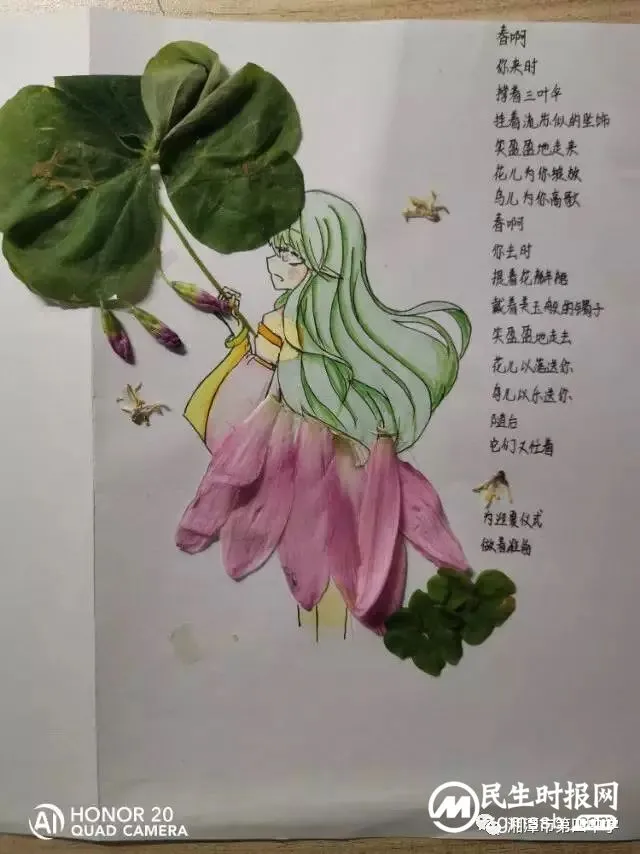 春啊
你来时
撑着三叶伞
挂着流苏似的坠饰
笑盈盈地走来
花儿为你绽放
鸟儿为你高歌
春啊
你去时
提着花
戴着美玉般的镯子
笑盈盈地走去
花儿以落送你
鸟儿以乐送你
随后
它们又忙着
为迎夏仪式
做着准备
HONOR 20
QUAD CAMERA
民生时报网
湘潭市第四中学